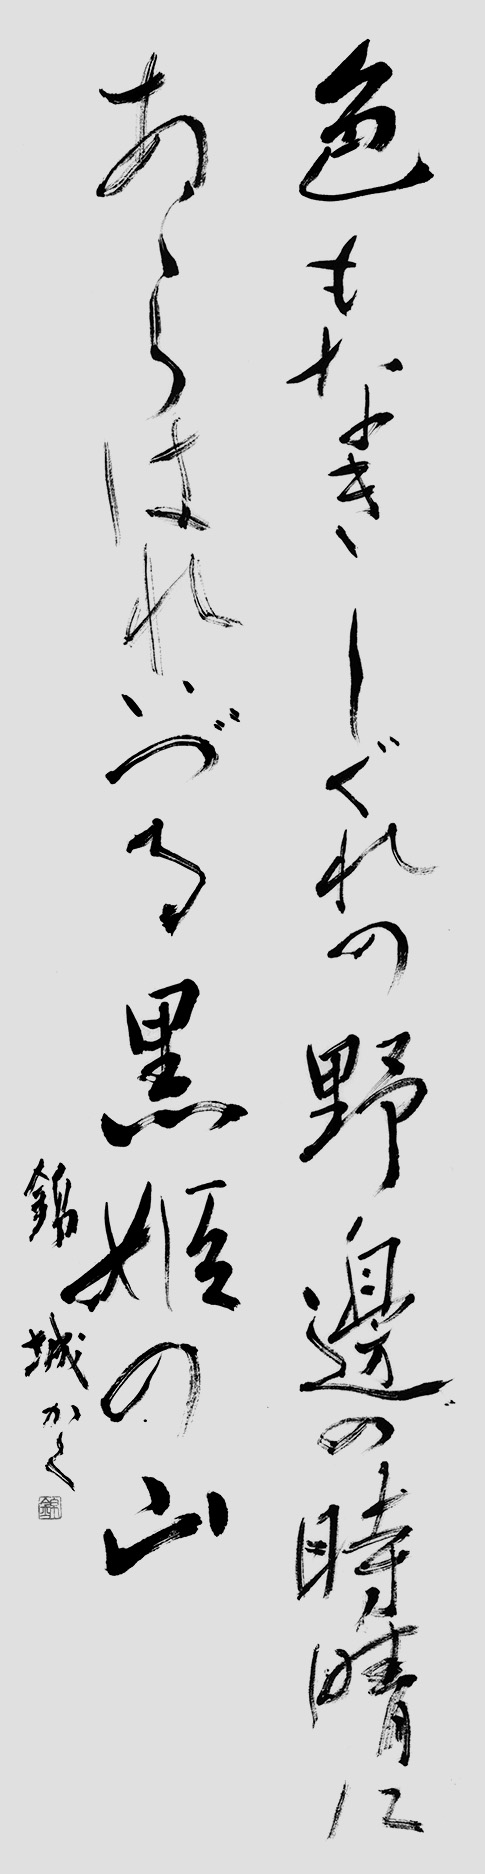 色もなきしぐれの野邊の時晴に
あらはれいづる黒姫の山
錦城かく
錦